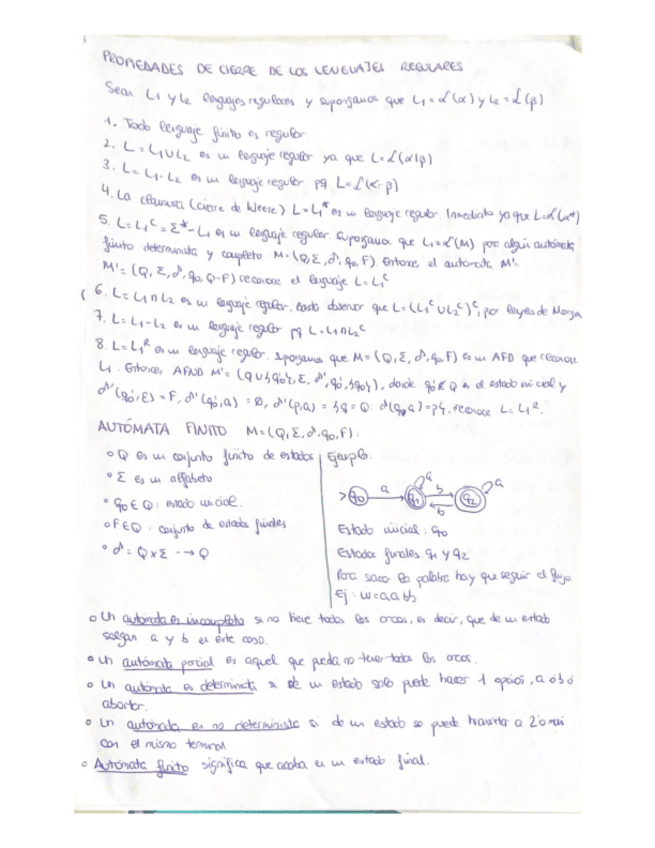 PROPIEDADES DE CIERRE DE LOS LENGUAJES REGULARES
Sean L1 y L2 lenguajes regulares y supongamos que L1 = L(α) y L2 = L(β)
1. Todo lenguaje finito es regular.
2. L = L1 ∪ L2 es un lenguaje regular ya que L = L(α|β)
3. L = L1 · L2 es un lenguaje regular pq L = L(α·β)
4. La clausura (cierre de Kleene) L = L1* es un lenguaje regular. Inmediato ya que L = L(α*)
5. L = L1ᶜ = Σ* - L1 es un lenguaje regular. Supongamos que L1 = L(M) para algún autómata
finito determinista y completo M = (Q, Σ, δ, q0, F). Entonces el autómata M' =
M' = (Q, Σ, δ, q0, Q-F) reconoce el lenguaje L = L1ᶜ
6. L = L1 ∩ L2 es un lenguaje regular. Basta observar que L = (L1ᶜ ∪ L2ᶜ)ᶜ, por leyes de Morgan
7. L = L1 - L2 es un lenguaje regular pq L = L1 ∩ L2ᶜ
8. L = L1ᴿ es un lenguaje regular. Supongamos que M = (Q, Σ, δ, q0, F) es un AFD que reconoce
L1. Entonces AFND M' = (Q ∪ {q0'}, Σ, δ', q0', {q0}), donde q0' ∉ Q es el estado inicial y
δ'(q0', ε) = F, δ'(q0', a) = Ø, δ'(p, a) = {q ∈ Q: δ(q, a) = p}, reconoce L = L1ᴿ.
AUTÓMATA FINITO M = (Q, Σ, δ, q0, F):
o Q es un conjunto finito de estados
o Σ es un alfabeto
o q0 ∈ Q: estado inicial.
o F ∈ Q: conjunto de estados finales
o δ = Q x Σ --> Q
Ejemplo:
> q0 a q1 a b b q2 a
Estado inicial: q0
Estados finales: q1 y q2
Para sacar la palabra hay que seguir el flujo
Ej: w = aabb
o Un autómata es incompleto si no tiene todos los arcos, es decir, que de un estado
salgan a y b en este caso.
o Un autómata parcial es aquel que pueda no tener todos los arcos.
o Un autómata es determinista si de un estado solo puede hacer 1 opción, a ó b ó
abortar.
o Un autómata es no determinista si de un estado se puede transitar a 2 o más
con el mismo terminal
o Autómata finito significa que acaba en un estado final.